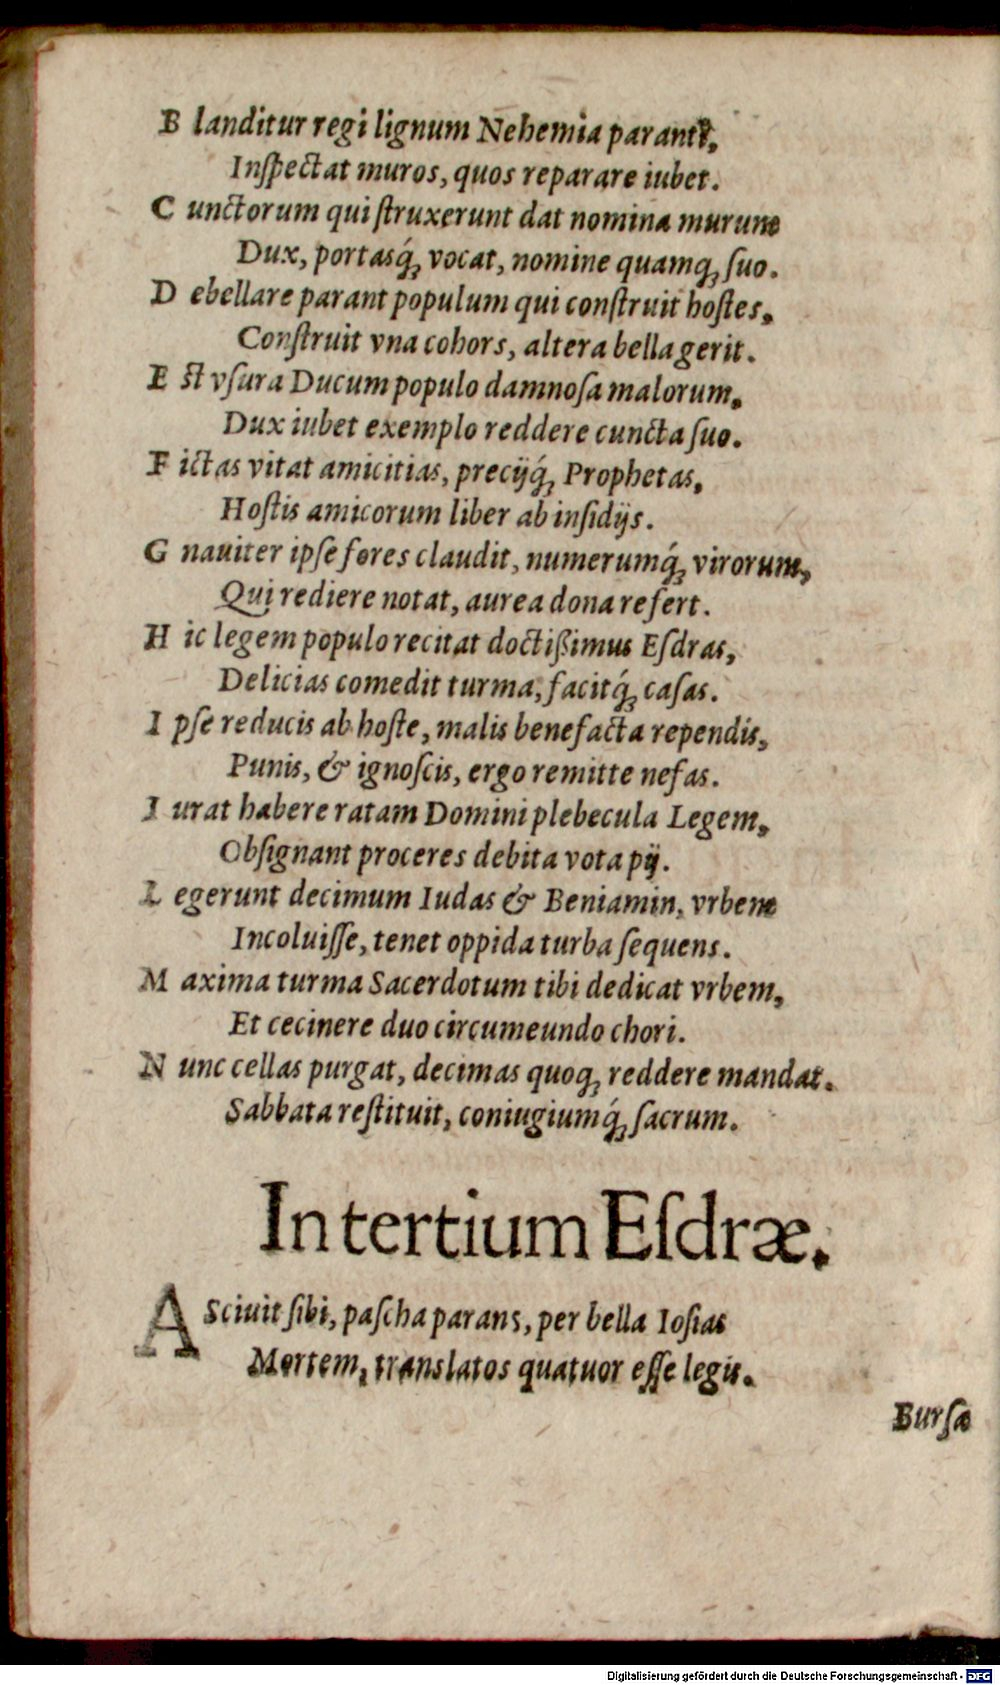 B landitur regi lignum Nehemia parante,
Inſpectat muros, quos reparare iubet.
C unctorum qui ſtruxerunt dat nomina murum
Dux, portasq́; vocat, nomine quamq; ſuo.
D ebellare parant populum qui conſtruit hoſtes,
Conſtruit vna cohors, altera bella gerit.
E ſt vſura Ducum populo damnoſa malorum,
Dux iubet exemplo reddere cuncta ſuo.
F ictas vitat amicitias, precijq́; Prophetas,
Hoſtis amicorum liber ab inſidijs.
G nauiter ipſe fores claudit, numerumq́; virorum,
Qui rediere notat, aurea dona refert.
H ic legem populo recitat doctißimus Eſdras,
Delicias comedit turma, facitq́; caſas.
I pſe reducis ab hoſte, malis benefacta rependis,
Punis, & ignoſcis, ergo remitte nefas.
I urat habere ratam Domini plebecula Legem,
Obſignant proceres debita vota pij.
L egerunt decimum Iudas & Beniamin, vrbem
Incoluiſſe, tenet oppida turba ſequens.
M axima turma Sacerdotum tibi dedicat vrbem,
Et cecinere duo circumeundo chori.
N unc cellas purgat, decimas quoq; reddere mandat.
Sabbata reſtituit, coniugiumq́; ſacrum.
In tertium Eſdræ.
A Sciuit ſibi, paſcha parans, per bella Ioſias
Mortem, translatos quatuor eſſe legis.
Burſæ
Digitalisierung gefördert durch die Deutsche Forschungsgemeinschaft - DFG